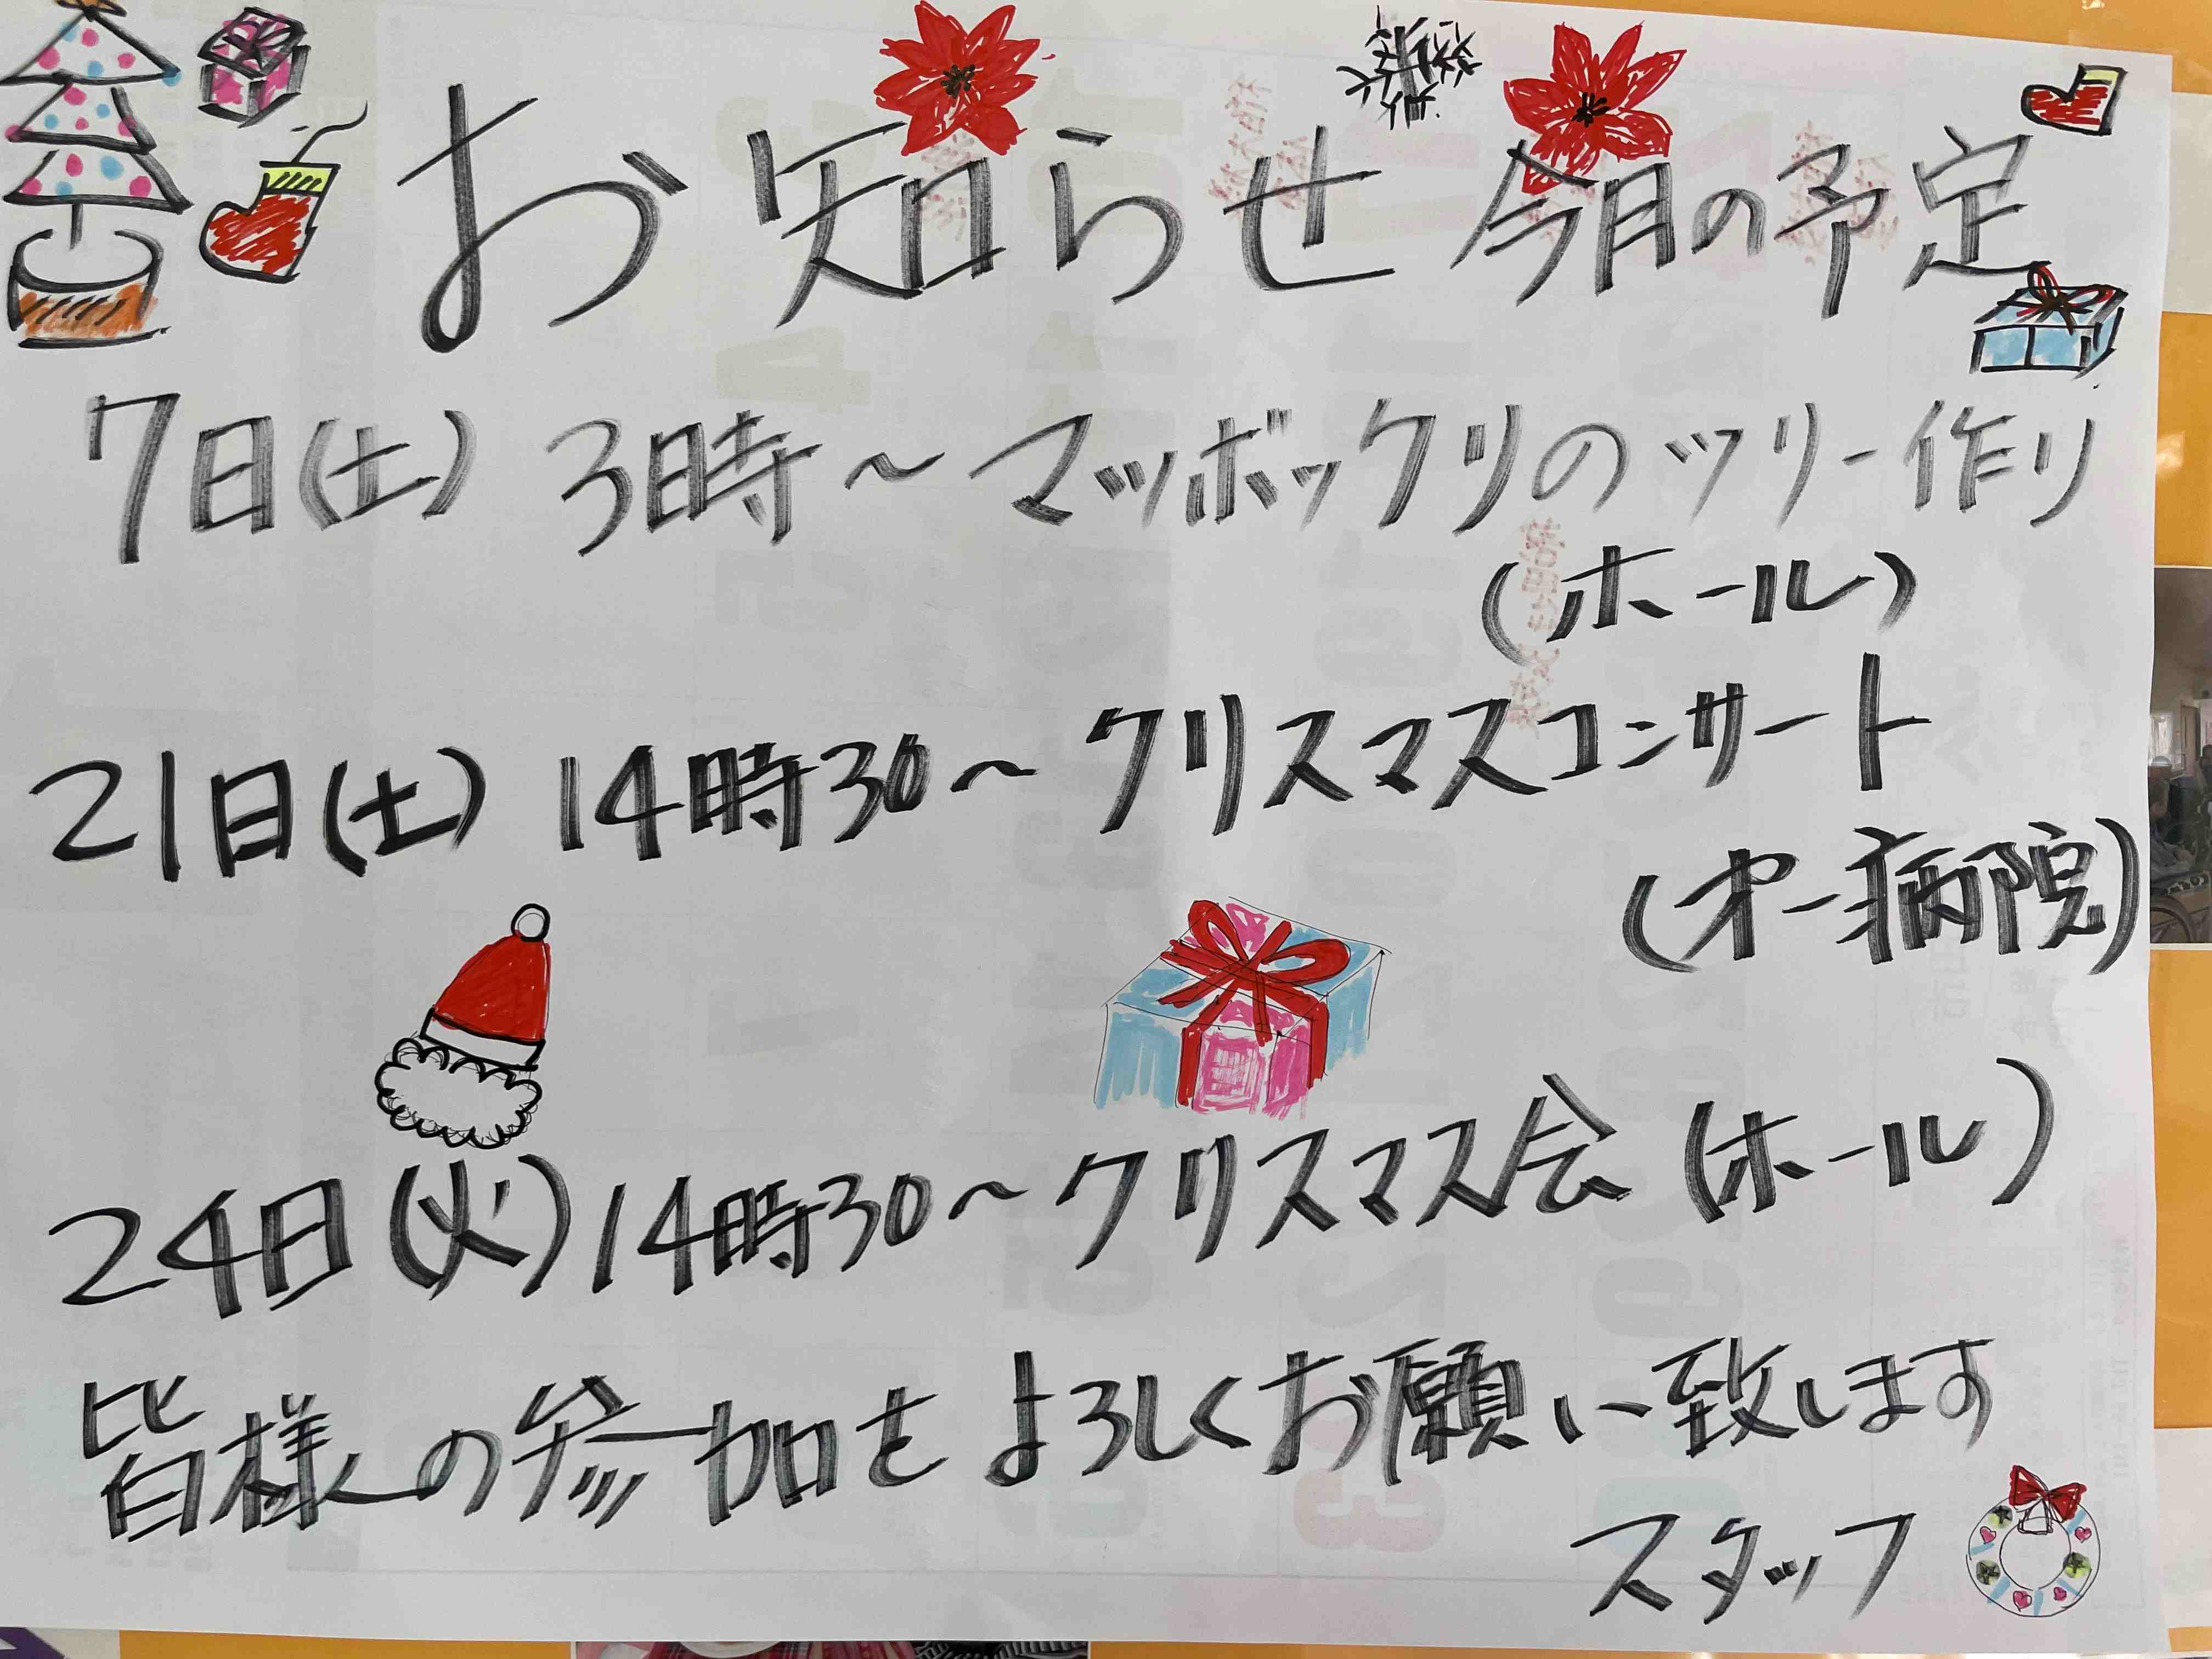 お知らせ 今月の予定
7日(土) 3時～マツボックリのツリー作り
(ホール)
21日(土) 14時30～クリスマスコンサート
(才一病院)
24日(火)14時30～クリスマス会(ホール)
皆様の参加をよろしくお願い致します
スタッフ